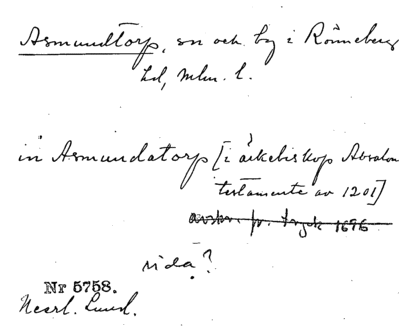 Asmundtorp, sn och by i Rönneberg
hd, Mlm. l.
in Asmundatorp [i ärkebiskop Absalon
testamente av 1201]
avskr. fr. tryck 1696
sida?
Nr 5758.
Neerl. Lund.